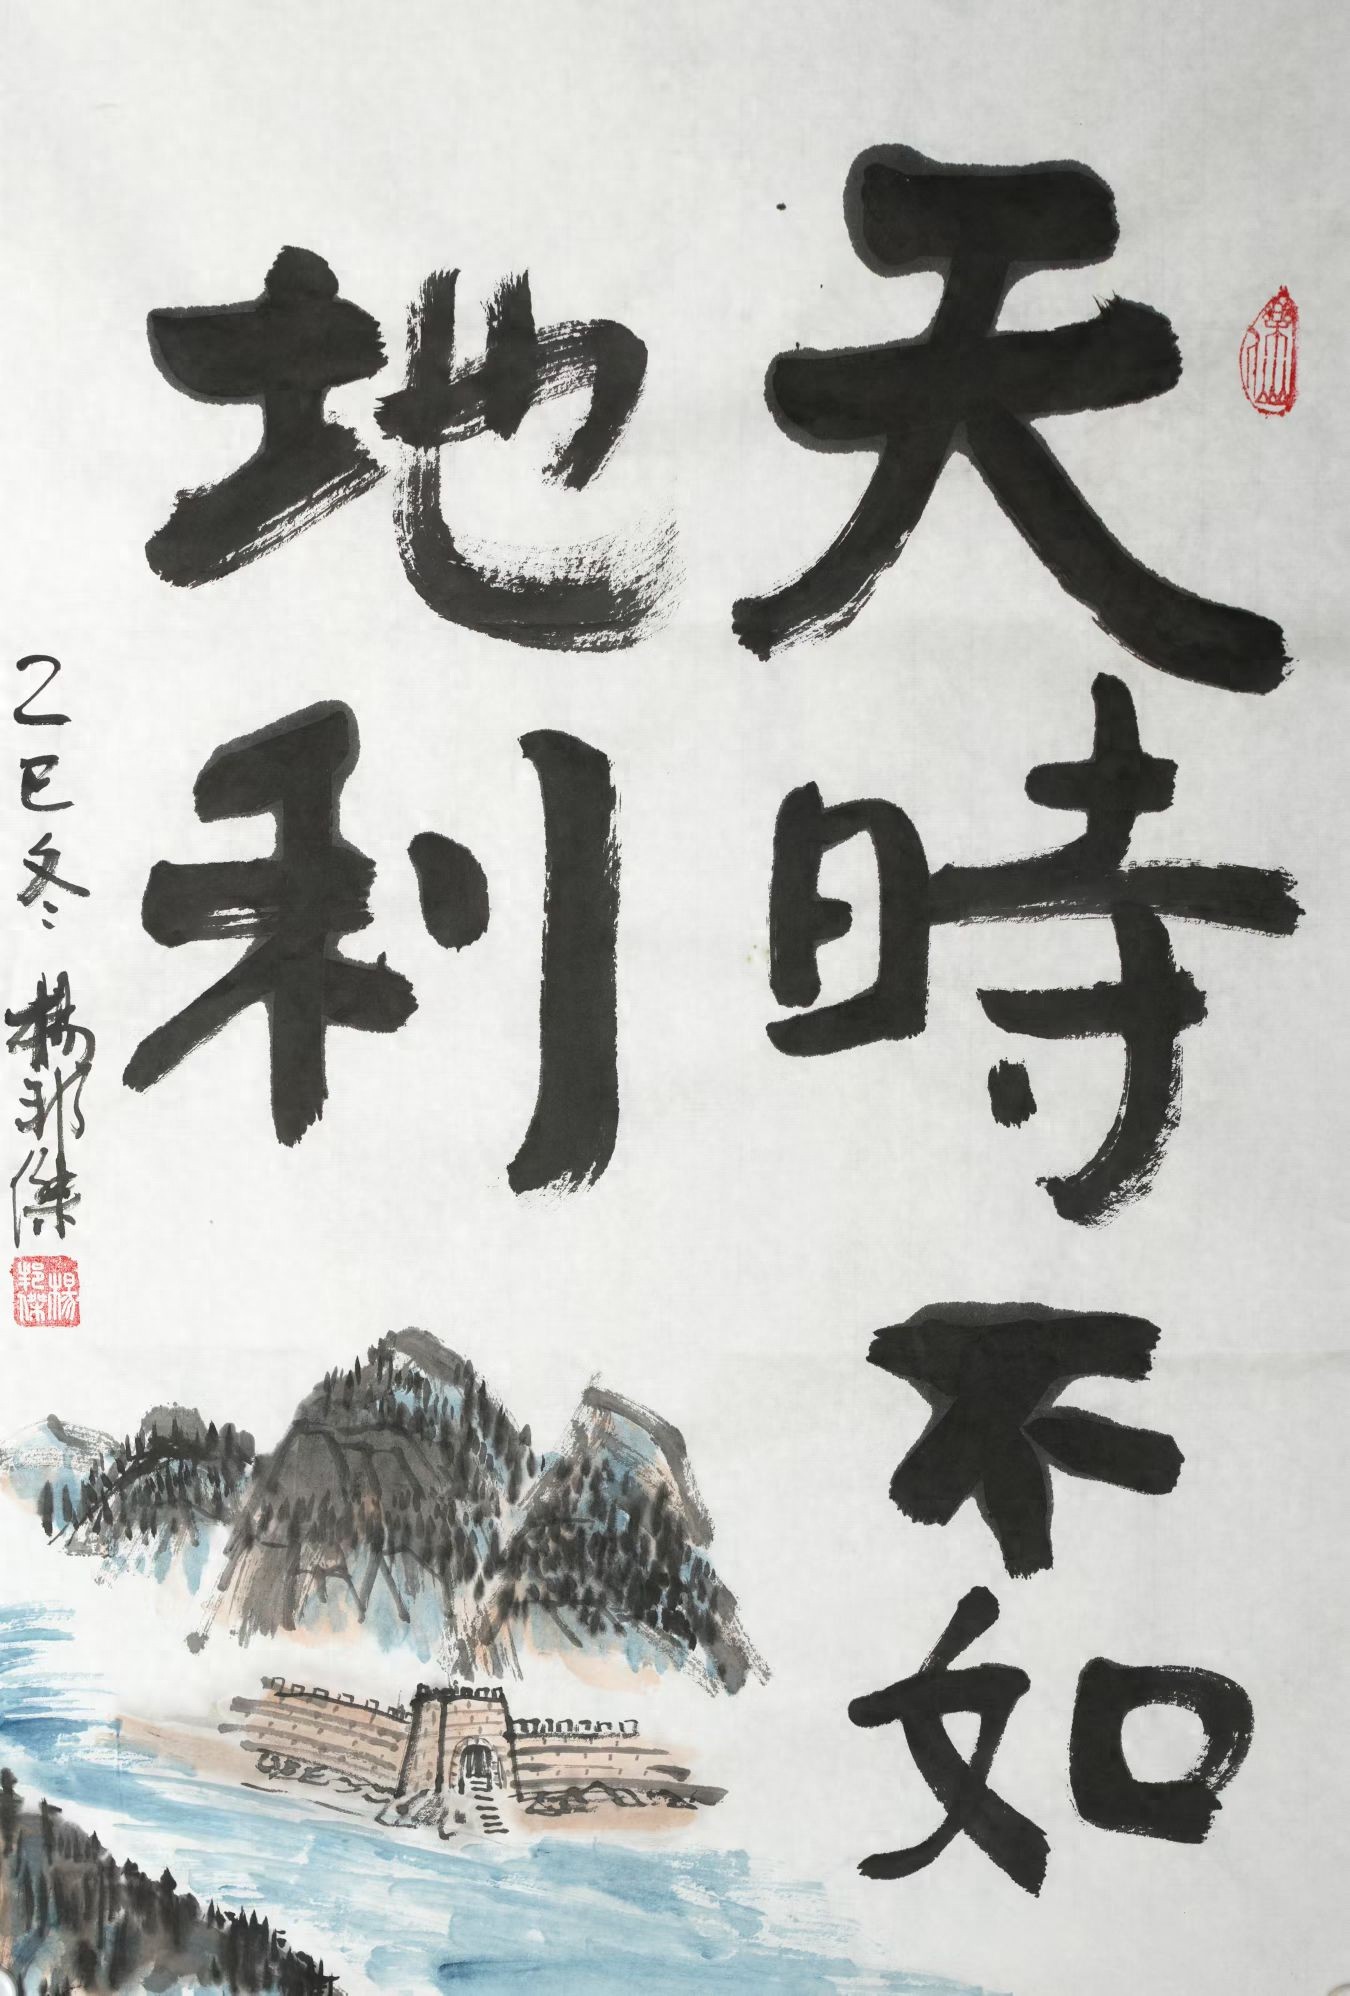 天時不如
地利
乙巳冬 楊邦傑
楊邦傑